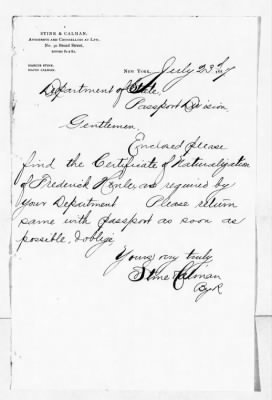 STINE & CALMAN,
ATTORNEYS AND COUNSELLORS AT LAW,
No. 30 Broad Street,
MARCUS STINE.
DAVID CALMAN.
NEW YORK, July 23 97
Department of State
Passport Division
Gentlemen,
Enclosed please
find the Certificate of Naturalization
of Frederick as required by
your Department Please return
same with passport as soon as
possible, & oblige
Yours very truly
Stine Calman
By R